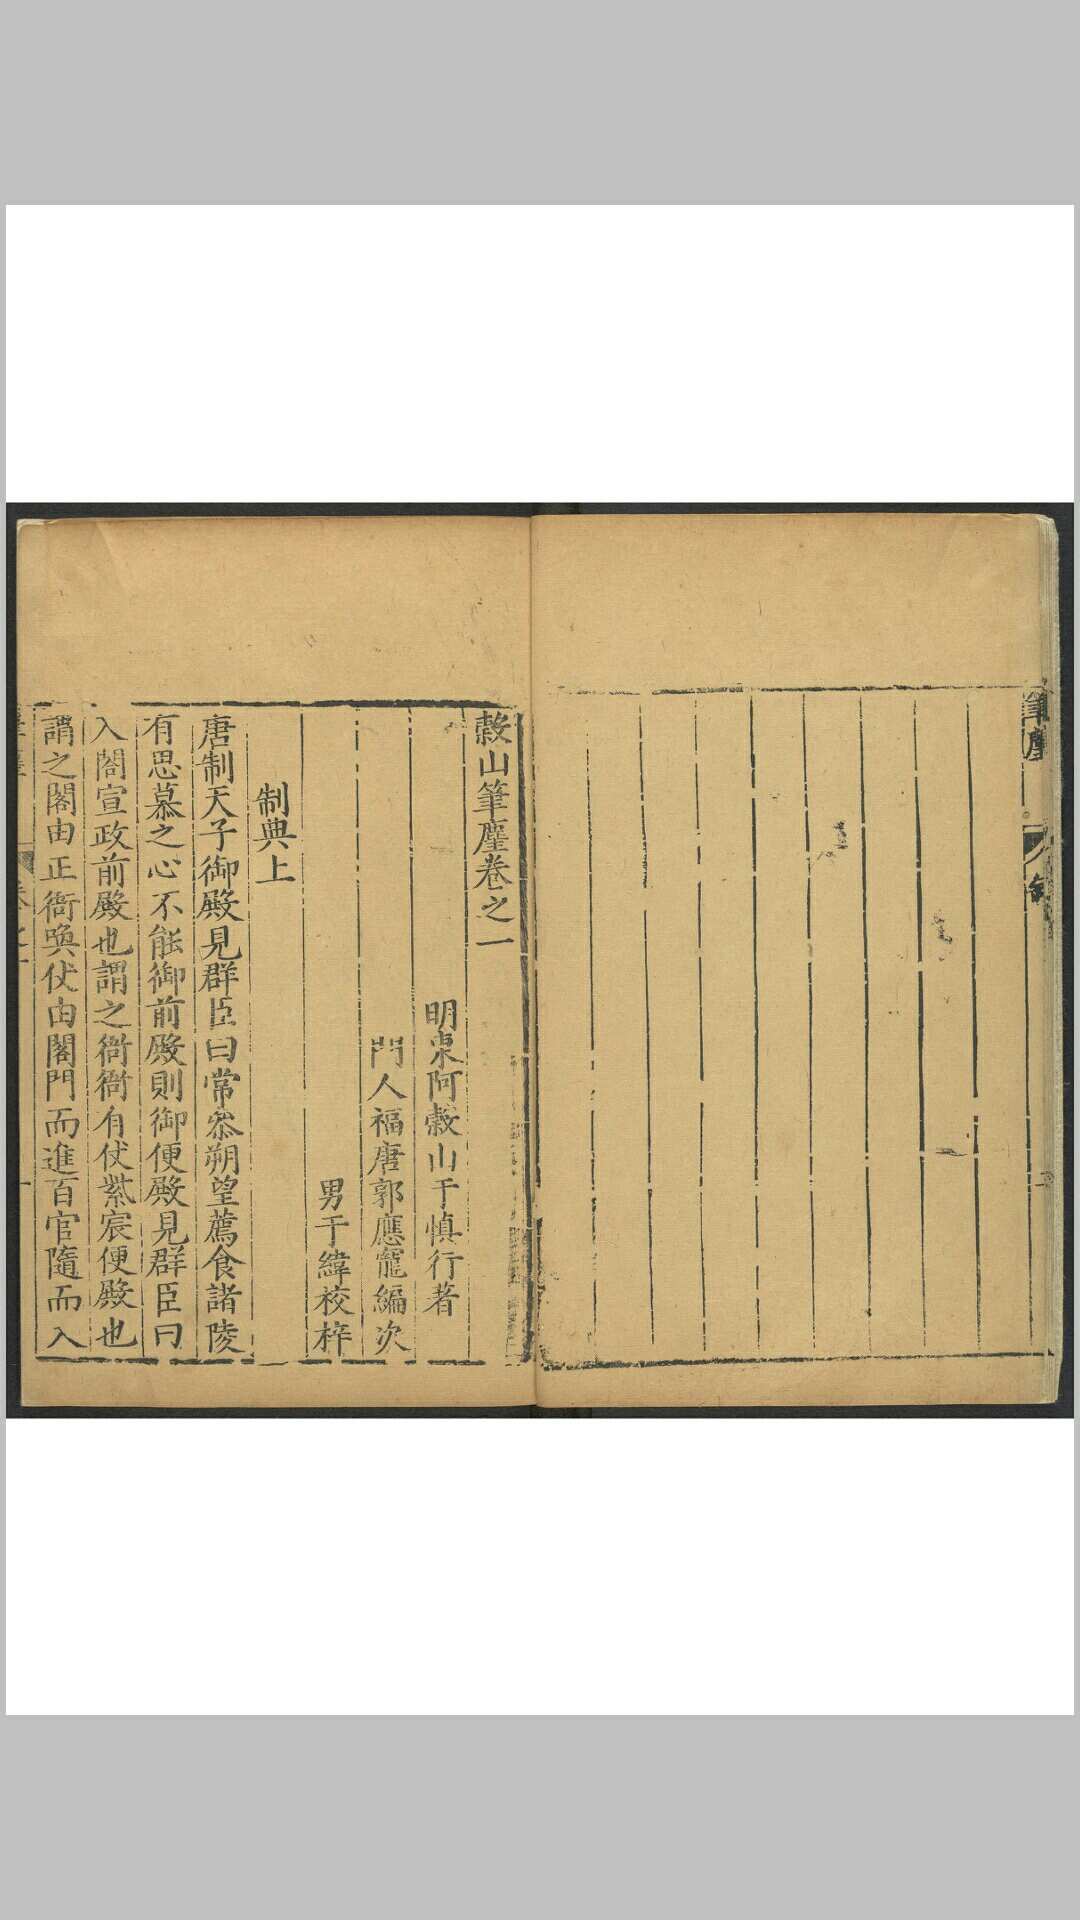 筆麈
穀山筆麈卷之一
明東阿穀山于慎行著
門人福唐郭應寵編次
男于緯校梓
制典上
唐制天子御殿見群臣曰常叅朔望薦食諸陵
有思慕之心不能御前殿則御便殿見群臣曰
入閤宣政前殿也謂之衙衙有仗紫宸便殿也
謂之閤由正衙喚仗由閤門而進百官隨而入